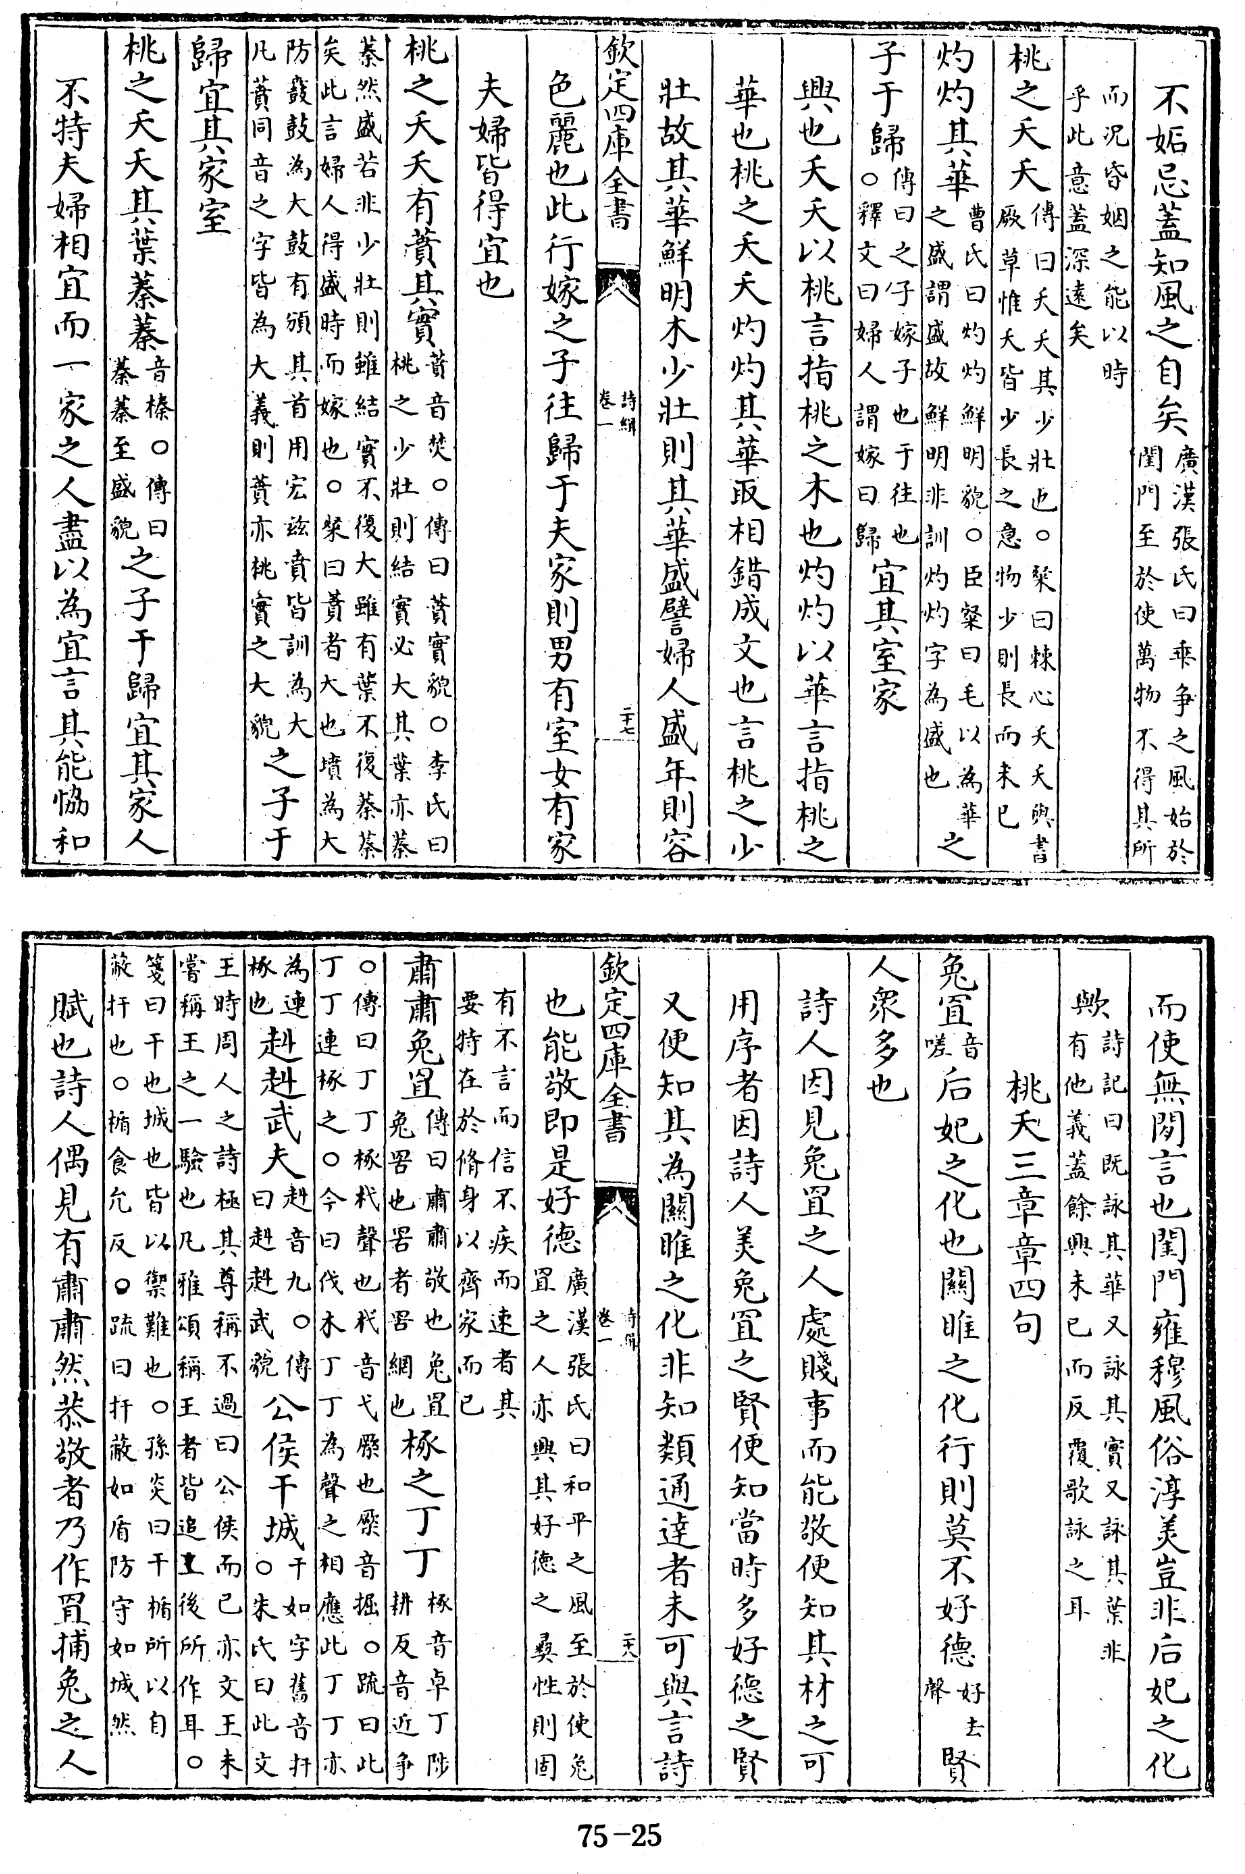 不妬忌蓋知風之自矣廣漢張氏曰乖爭之風始於閨門至於使萬物不得其所
而況昏姻之能以時乎此意蓋深遠矣
桃之夭夭傳曰夭夭其少壯也○粲曰棘心夭夭與書厥草惟夭皆少長之意物少則長而未已
灼灼其華曹氏曰灼灼鮮明貌○臣粲曰毛以為華之盛謂盛故鮮明非訓灼灼字為盛也之
子于歸傳曰之子嫁子也于往也○釋文曰婦人謂嫁曰歸宜其室家
興也夭夭以桃言指桃之木也灼灼以華言指桃之
華也桃之夭夭灼灼其華取相錯成文也言桃之少
壯故其華鮮明木少壯則其華盛譬婦人盛年則容
欽定四庫全書
詩緝
卷一
二十七
色麗也此行嫁之子往歸于夫家則男有室女有家
夫婦皆得宜也
桃之夭夭有蕡其實蕡音焚○傳曰蕡實貌○李氏曰桃之少壯則結實必大其葉亦蓁
蓁然盛若非少壯則雖結實不復大雖有葉不復蓁蓁矣此言婦人得盛時而嫁也○粲曰蕡者大也墳為大
防鼖鼓為大鼓有頒其首用宏兹賁皆訓為大凡蕡同音之字皆為大義則蕡亦桃實之大貌之子于
歸宜其家室
桃之夭夭其葉蓁蓁音榛○傳曰蓁蓁至盛貌之子于歸宜其家人
不特夫婦相宜而一家之人盡以為宜言其能恊和
而使無閒言也閨門雍穆風俗淳美豈非后妃之化
歟詩記曰既詠其華又詠其實又詠其葉非有他義蓋餘興未已而反覆歌詠之耳
桃夭三章章四句
兔罝音嗟后妃之化也關雎之化行則莫不好德好去聲賢
人衆多也
詩人因見兔罝之人處賤事而能敬便知其材之可
用序者因詩人美兔罝之賢便知當時多好德之賢
又便知其為關雎之化非知類通達者未可與言詩
欽定四庫全書
詩緝
卷一
二十八
也能敬即是好德廣漢張氏曰和平之風至於使兔罝之人亦興其好德之彝性則固
有不言而信不疾而速者其要特在於脩身以齊家而已
肅肅兔罝傳曰肅肅敬也兔罝兔罟也罟者罟網也椓之丁丁椓音卓丁陟耕反音近爭
○傳曰丁丁椓杙聲也杙音弋橜也橜音掘○疏曰此丁丁連椓之○今曰伐木丁丁為聲之相應此丁丁亦
為連椓也赳赳武夫赳音九○傳曰赳赳武貌公侯干城干如字舊音扞○朱氏曰此文
王時周人之詩極其尊稱不過曰公侯而已亦文王未嘗稱王之一驗也凡雅頌稱王者皆追王後所作耳○
箋曰干也城也皆以禦難也○孫炎曰干楯所以自蔽扞也○楯食允反○疏曰扞蔽如盾防守如城然
賦也詩人偶見有肅肅然恭敬者乃作罝捕兔之人
75-25